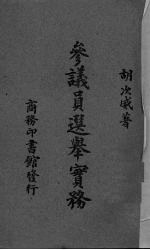 胡次威著
參議員選舉實務
商務印書館發行